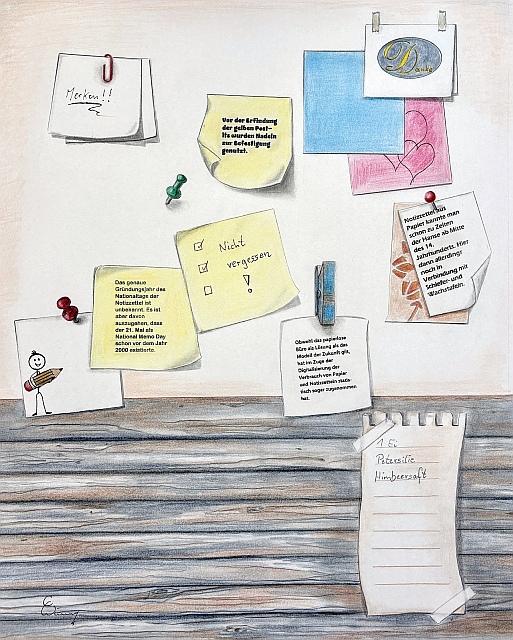 Danke
Merken!!
Vor der Erfindung
der gelben Post-
Its wurden Nadeln
zur Befestigung
genutzt.
Notizzettel aus
Papier kannte man
schon zu Zeiten
der Hanse ab Mitte
des 14.
Jahrhunderts. Hier
dann allerdings
noch in
Verbindung mit
Schiefer- und
Wachstafeln.
Nicht
vergessen
!
Das genaue
Gründungsjahr des
Nationaltags der
Notizzettel ist
unbekannt. Es ist
aber davon
auszugehen, dass
der 21. Mai als
National Memo Day
schon vor dem Jahr
2000 existierte.
Obwohl das papierlose
Büro als Lösung als das
Modell der Zukunft gilt,
hat im Zuge der
Digitalisierung der
Verbrauch von Papier
und Notizzetteln statis-
tisch sogar zugenommen
hat.
1 Ei
Petersilie
Himbeersaft